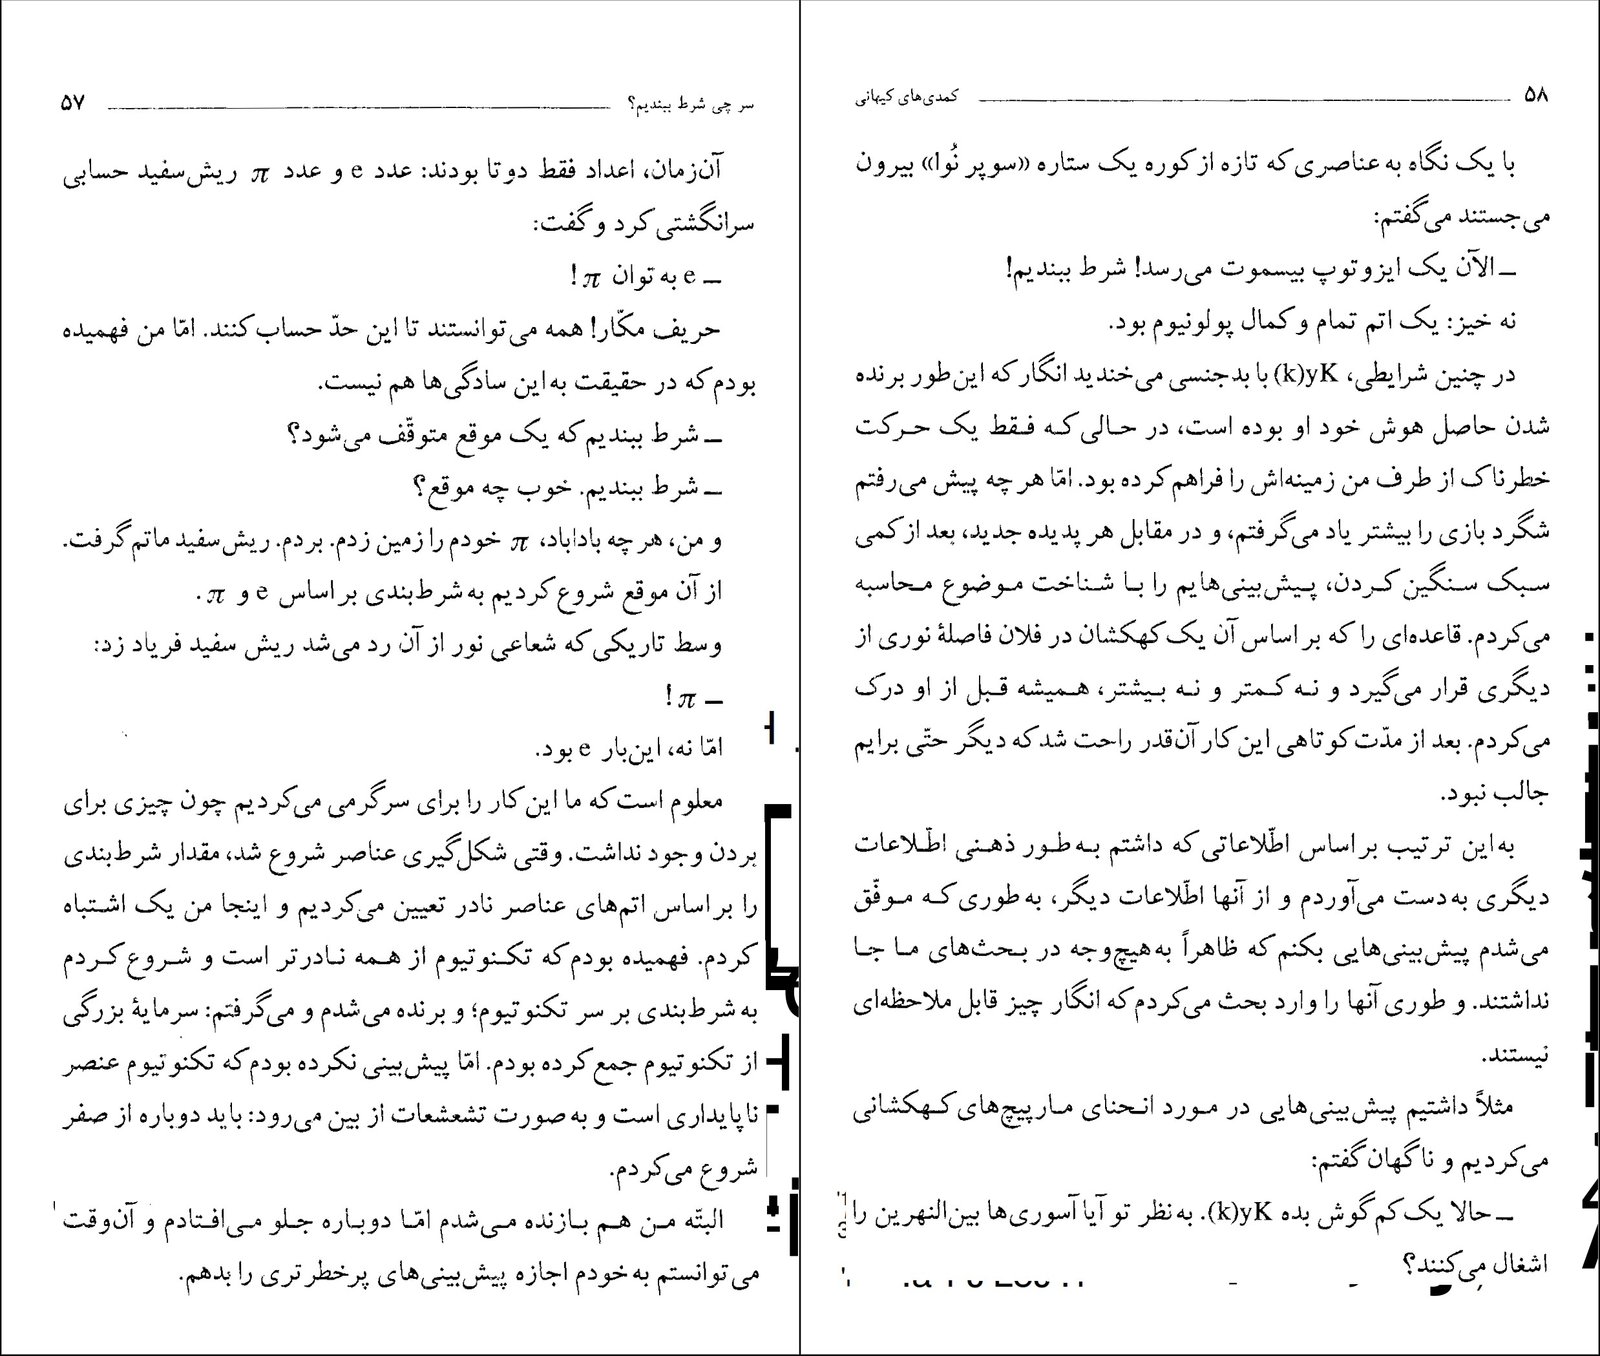 سر چی شرط ببندیم؟ ۵۷
آن‌زمان، اعداد فقط دوتا بودند: عدد e و عدد π ریش‌سفید حسابی
سرانگشتی کرد و گفت:
ــ e به توان π !
حریف مکّار! همه می‌توانستند تا این حدّ حساب کنند. امّا من فهمیده
بودم که در حقیقت به این سادگی‌ها هم نیست.
ــ شرط ببندیم که یک موقع متوقّف می‌شود؟
ــ شرط ببندیم. خوب چه موقع؟
و من، هر چه باداباد، π خودم را زمین زدم. بردم. ریش‌سفید ماتم گرفت.
از آن موقع شروع کردیم به شرط‌بندی بر اساس e و π .
وسط تاریکی که شعاعی نور از آن رد می‌شد ریش سفید فریاد زد:
ــ π !
امّا نه، این‌بار e بود.
معلوم است که ما این کار را برای سرگرمی می‌کردیم چون چیزی برای
بردن وجود نداشت. وقتی شکل‌گیری عناصر شروع شد، مقدار شرط‌بندی
را بر اساس اتم‌های عناصر نادر تعیین می‌کردیم و اینجا من یک اشتباه
کردم. فهمیده بودم که تکنوتیوم از همه نادرتر است و شروع کردم
به شرط‌بندی بر سر تکنوتیوم؛ و برنده می‌شدم و می‌گرفتم: سرمایهٔ بزرگی
از تکنوتیوم جمع کرده بودم. امّا پیش‌بینی نکرده بودم که تکنوتیوم عنصر
ناپایداری است و به صورت تشعشعات از بین می‌رود: باید دوباره از صفر
شروع می‌کردم.
البتّه من هم بازنده می‌شدم امّا دوباره جلو می‌افتادم و آن‌وقت
می‌توانستم به خودم اجازه پیش‌بینی‌های پرخطرتری را بدهم.
۵۸ کمدی‌های کیهانی
با یک نگاه به عناصری که تازه از کوره یک ستاره «سوپر نُوا» بیرون
می‌جستند می‌گفتم:
ــ الآن یک ایزوتوپ بیسموت می‌رسد! شرط ببندیم!
نه خیز: یک اتم تمام و کمال پولونیوم بود.
در چنین شرایطی، (k)yK با بدجنسی می‌خندید انگار که این‌طور برنده
شدن حاصل هوش خود او بوده است، در حالی که فقط یک حرکت
خطرناک از طرف من زمینه‌اش را فراهم کرده بود. امّا هر چه پیش می‌رفتم
شگرد بازی را بیشتر یاد می‌گرفتم، و در مقابل هر پدیده جدید، بعد از کمی
سبک سنگین کردن، پیش‌بینی‌هایم را با شناخت موضوع محاسبه
می‌کردم. قاعده‌ای را که بر اساس آن یک کهکشان در فلان فاصلهٔ نوری از
دیگری قرار می‌گیرد و نه کمتر و نه بیشتر، همیشه قبل از او درک
می‌کردم. بعد از مدّت کوتاهی این کار آن‌قدر راحت شد که دیگر حتّی برایم
جالب نبود.
به این ترتیب بر اساس اطّلاعاتی که داشتم به طور ذهنی اطّلاعات
دیگری به دست می‌آوردم و از آنها اطّلاعات دیگر، به طوری که موفّق
می‌شدم پیش‌بینی‌هایی بکنم که ظاهراً به هیچ‌وجه در بحث‌های ما جا
نداشتند. و طوری آنها را وارد بحث می‌کردم که انگار چیز قابل ملاحظه‌ای
نیستند.
مثلاً داشتیم پیش‌بینی‌هایی در مورد انحنای مارپیچ‌های کهکشانی
می‌کردیم و ناگهان گفتم:
ــ حالا یک کم گوش بده (k)yK. به نظر تو آیا آسوری‌ها بین‌النهرین را
اشغال می‌کنند؟